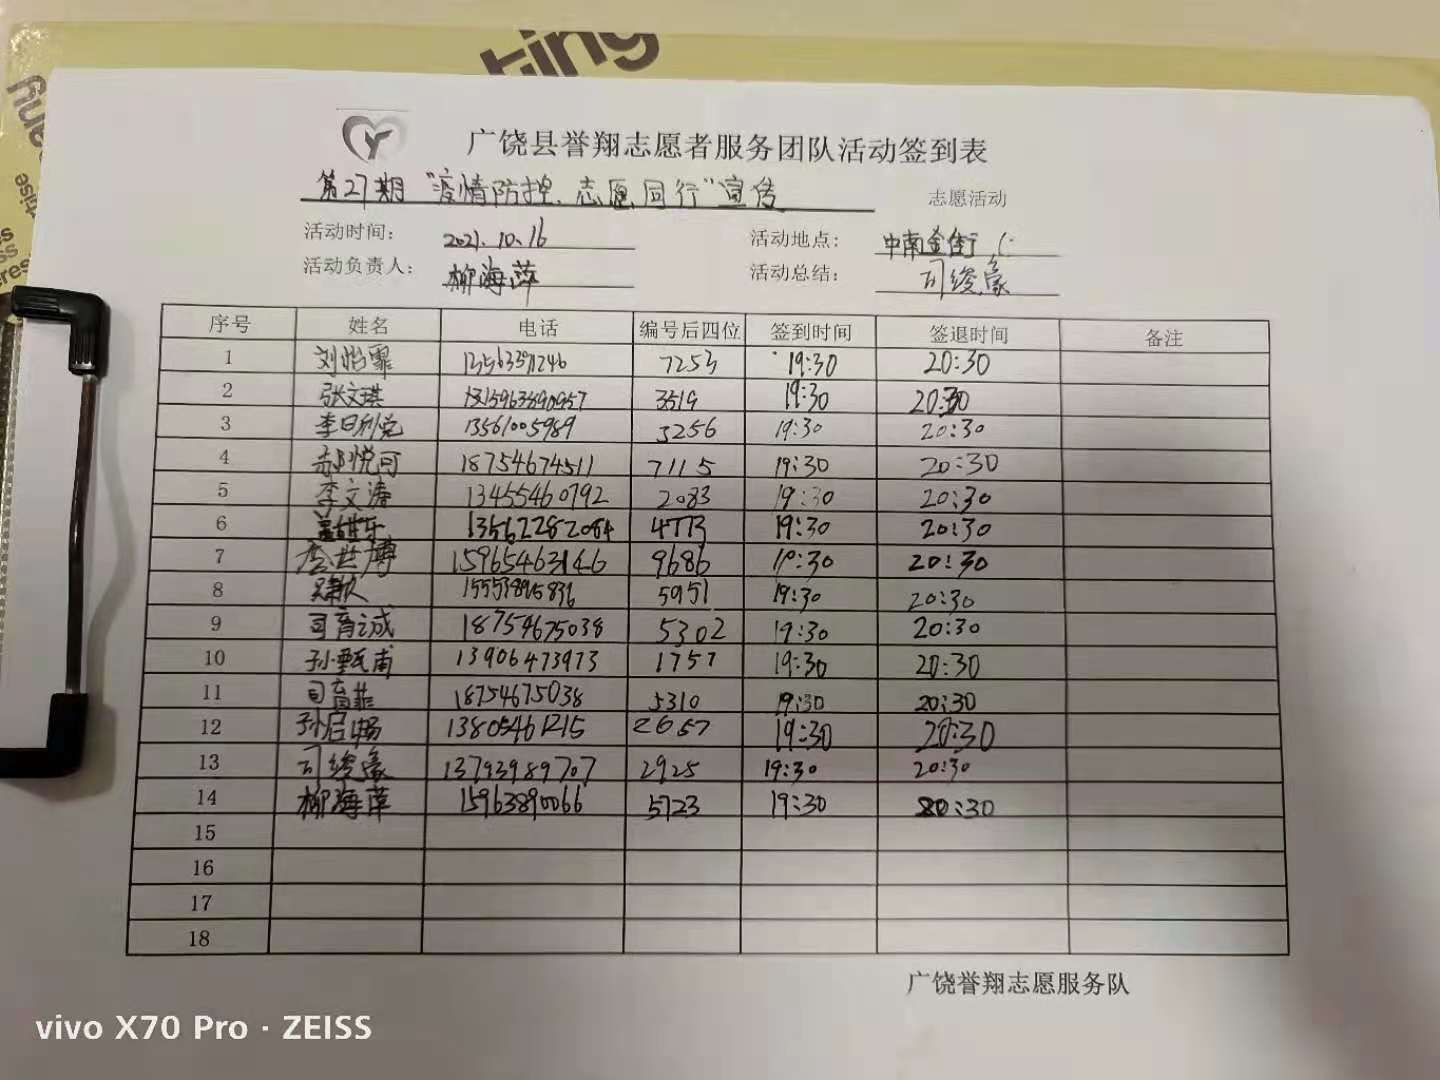 ting
广饶县誉翔志愿者服务团队活动签到表
第27期"疫情防控、志愿同行"宣传 志愿活动
活动时间: 2021.10.16 活动地点: 中南金街
活动负责人: 柳海萍 活动总结: 司绫豪
序号 姓名 电话 编号后四位 签到时间 签退时间 备注
1 刘怡霏 13563371246 7253 19:30 20:30
2 张文琪 3519 19:30 20:30
3 李日利党 13561005989 3256 19:30 20:30
4 郝悦可 18754674511 7115 19:30 20:30
5 李文涛 13455460792 2083 19:30 20:30
6 13562282084 4773 19:30 20:30
7 李世博 15965463146 9686 19:30 20:30
8 15553895836 5951 19:30 20:30
9 司育诚 18754675038 5302 19:30 20:30
10 孙甄甫 13906473973 1757 19:30 20:30
11 司育菲 18754675038 5310 19:30 20:30
12 孙启畅 13805461215 2657 19:30 20:30
13 司绫豪 13793989707 2925 19:30 20:30
14 柳海萍 15963890066 5723 19:30 20:30
15
16
17
18
广饶誉翔志愿服务队
vivo X70 Pro · ZEISS